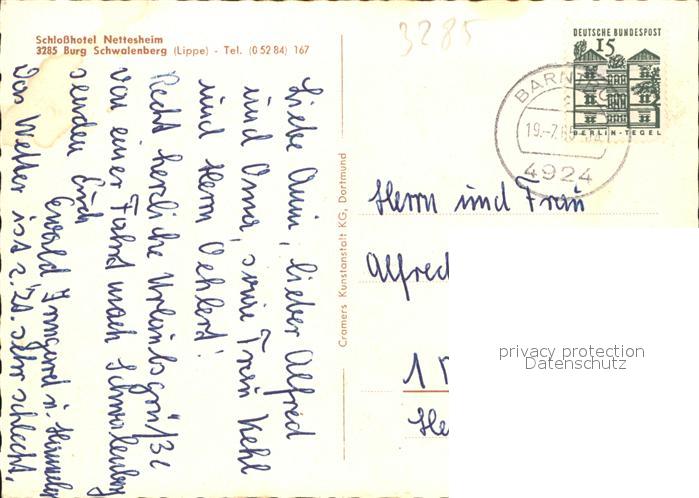 Schloßhotel Nettesheim
3285 Burg Schwalenberg (Lippe) - Tel. (0 52 84) 167
3285
DEUTSCHE BUNDESPOST
15
BERLIN-TEGEL
BARN
19.-7.65
4924
Liebe Anni, lieber Alfred
und Oma, sowie Frau Kehl
und Herrn Oehlert!
Recht herzliche Urlaubsgrüße
von einer Fahrt nach Schwalenberg
senden Euch
Ewald Irmgard u.
Das Wetter ist z. Zt. sehr schlecht.
Cramers Kunstanstalt KG, Dortmund
Herrn und Frau
Alfred
1
He
privacy protection
Datenschutz